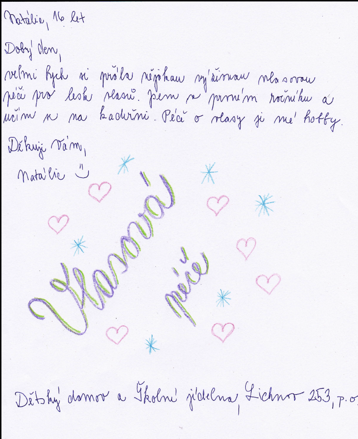 Natálie, 16 let
Dobrý den,
velmi bych si přála nějakou výživnou vlasovou
péči pro lesk vlasů. Jsem v prvním ročníku a
učím se na kadeřnici. Péče o vlasy je mé hobby.
Děkuji Vám,
Natálie
Vlasová
péče
Dětský domov a Školní jídelna, Lichnov 253, p.o